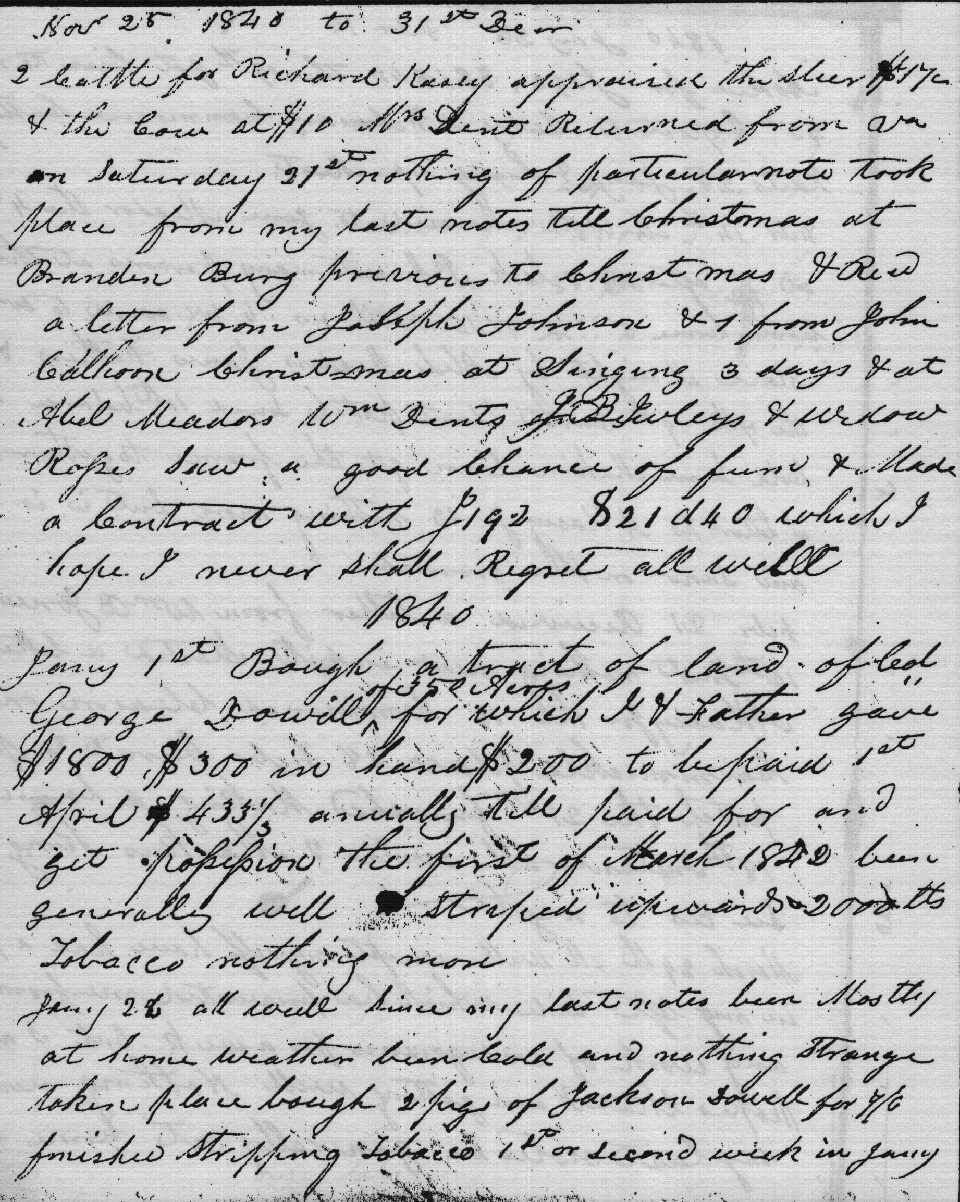 Nov 25. 1840 to 31st Decr
2 Cattle for Richard Kasey appraised the steer
& the Cow at $10 Mrs Dent Returned from Va
on Saturday 21st nothing of particular note took
place from my last notes till Christmas at
Branden Burg previous to Christmas & Recd
a letter from Joseph Johnson & 1 from John
Calhoon Christmas at Singing 3 days & at
Abel Meadors Wm Dents & Widow
Rosses Saw a good Chance of fun & Made
a Contract with J192 $21d40 which I
hope I never shall Regret all well
1840
Jany 1st Bough a tract of land of Ced
of 350 Acres
George Dowell ^ for which I & Father gave
$1800. $300 in hand $200 to be paid 1st
April $433 1/3 anually till paid for and
get possession the first of March 1842 been
generally well striped upwards 2000 lts
Tobacco nothing more
Jany 28 all well Since my last notes been Mostly
at home weather been Cold and nothing strange
taken place bough 2 pigs of Jackson Dowell for 7/6
finished stripping Tobacco 1st or second week in Jany